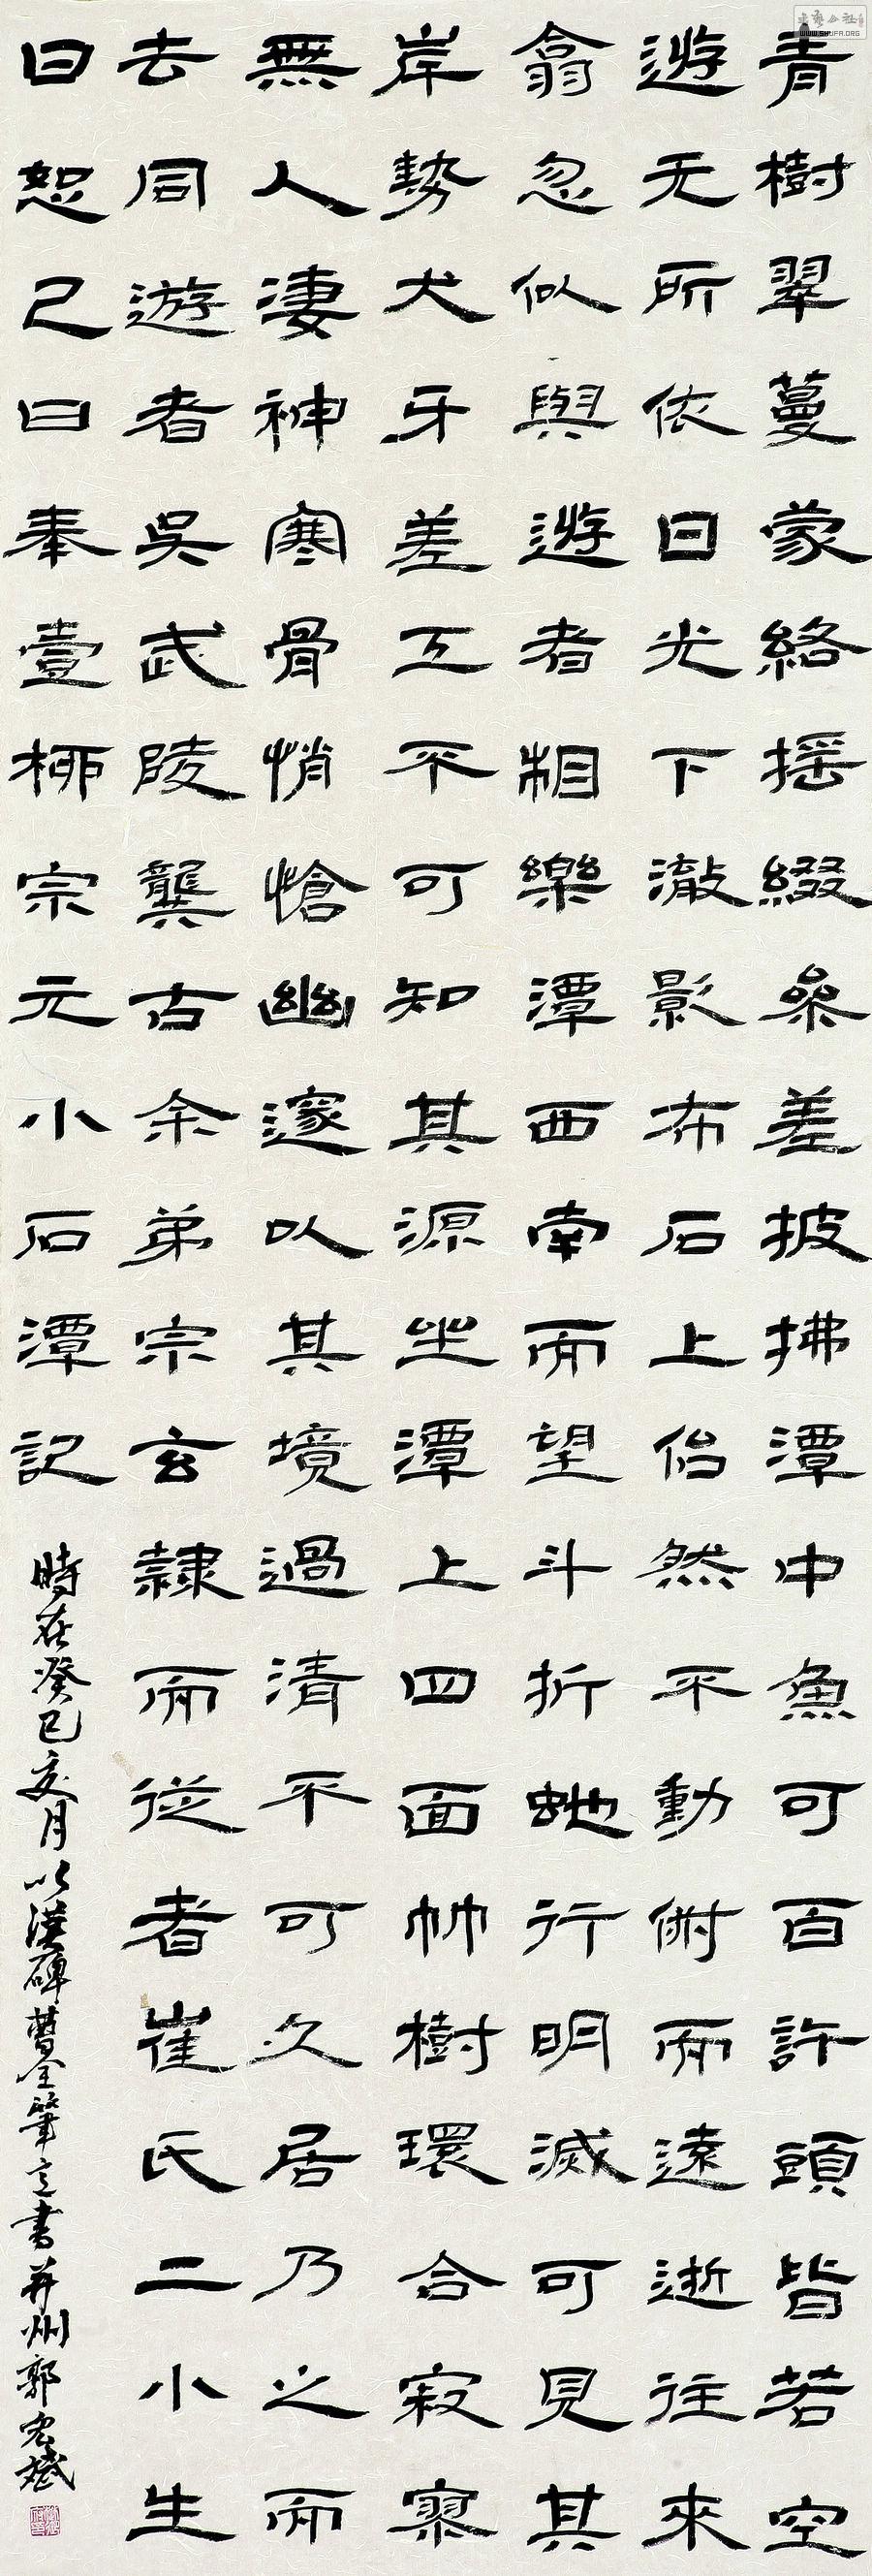 青樹翠蔓蒙絡搖綴參差披拂潭中魚可百許頭皆若空
遊无所依日光下澈影布石上佁然不動俯而遠逝往來
翕忽似與遊者相樂潭西南而望斗折蛇行明滅可見其
岸勢犬牙差互不可知其源坐潭上四面竹樹環合寂寥
無人凄神寒骨悄愴幽邃以其境過清不可久居乃之而
去同遊者吳武陵龔古余弟宗玄隸而從者崔氏二小生
曰恕己曰奉壹柳宗元小石潭記
時在癸巳亥月以漢碑曹全筆意書并州郭宏斌
書法公社
WWW.SHUFA.ORG